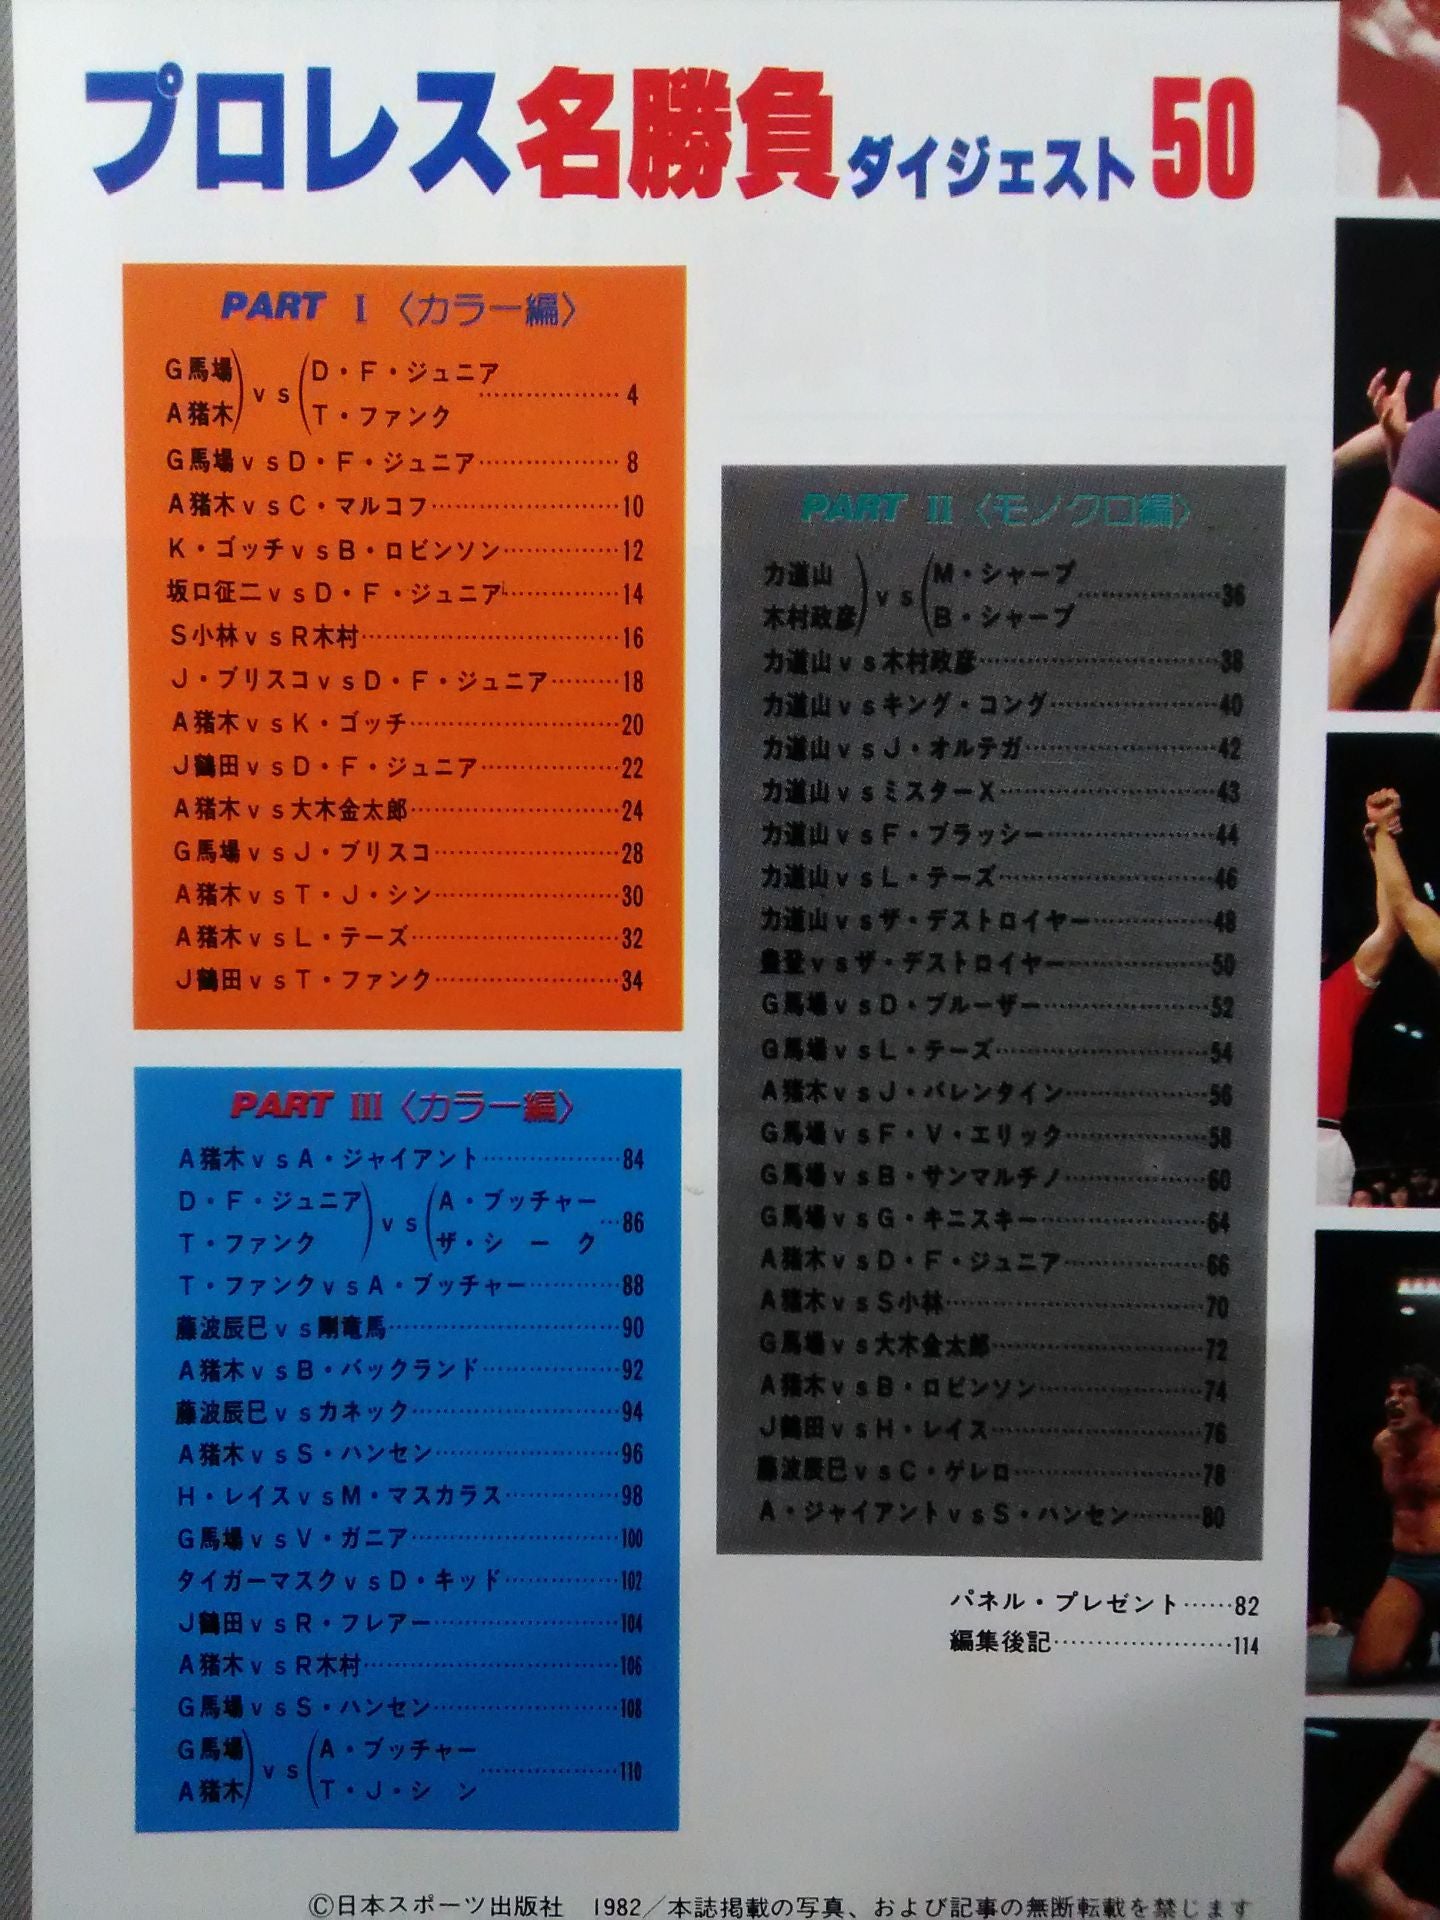 プロレス名勝負ダイジェスト50
PART Ⅰ 〈カラー編〉
G馬場 A猪木 vs D・F・ジュニア T・ファンク………………4
G馬場vsD・F・ジュニア………………8
A猪木vsC・マルコフ………………10
K・ゴッチvsB・ロビンソン………………12
坂口征二vsD・F・ジュニア………………14
S小林vsR木村………………16
J・ブリスコvsD・F・ジュニア………18
A猪木vsK・ゴッチ………………20
J鶴田vsD・F・ジュニア………………22
A猪木vs大木金太郎………………24
G馬場vsJ・ブリスコ………………28
A猪木vsT・J・シン………………30
A猪木vsL・テーズ………………32
J鶴田vsT・ファンク………………34
PART Ⅱ 〈モノクロ編〉
力道山 木村政彦 vs M・シャープ B・シャープ………………36
力道山vs木村政彦………………38
力道山vsキング・コング………………40
力道山vsJ・オルテガ………………42
力道山vsミスターX………………43
力道山vsF・ブラッシー………………44
力道山vsL・テーズ………………46
力道山vsザ・デストロイヤー………………48
豊登vsザ・デストロイヤー………………50
G馬場vsD・ブルーザー………………52
G馬場vsL・テーズ………………54
A猪木vsJ・バレンタイン………………56
G馬場vsF・V・エリック………………58
G馬場vsB・サンマルチノ………………60
G馬場vsG・キニスキー………………64
A猪木vsD・F・ジュニア………………66
A猪木vsS小林………………70
G馬場vs大木金太郎………………72
A猪木vsB・ロビンソン………………74
J鶴田vsH・レイス………………76
藤波辰巳vsC・ゲレロ………………78
A・ジャイアントvsS・ハンセン………80
PART Ⅲ 〈カラー編〉
A猪木vsA・ジャイアント………………84
D・F・ジュニア T・ファンク vs A・ブッチャー ザ・シーク…86
T・ファンクvsA・ブッチャー…………88
藤波辰巳vs剛竜馬………………90
A猪木vsB・バックランド………………92
藤波辰巳vsカネック………………94
A猪木vsS・ハンセン………………96
H・レイスvsM・マスカラス…………98
G馬場vsV・ガニア………………100
タイガーマスクvsD・キッド…………102
J鶴田vsR・フレアー………………104
A猪木vsR木村………………106
G馬場vsS・ハンセン………………108
G馬場 A猪木 vs A・ブッチャー T・J・シン………………110
パネル・プレゼント……82
編集後記………………114
©日本スポーツ出版社 1982/本誌掲載の写真、および記事の無断転載を禁じます